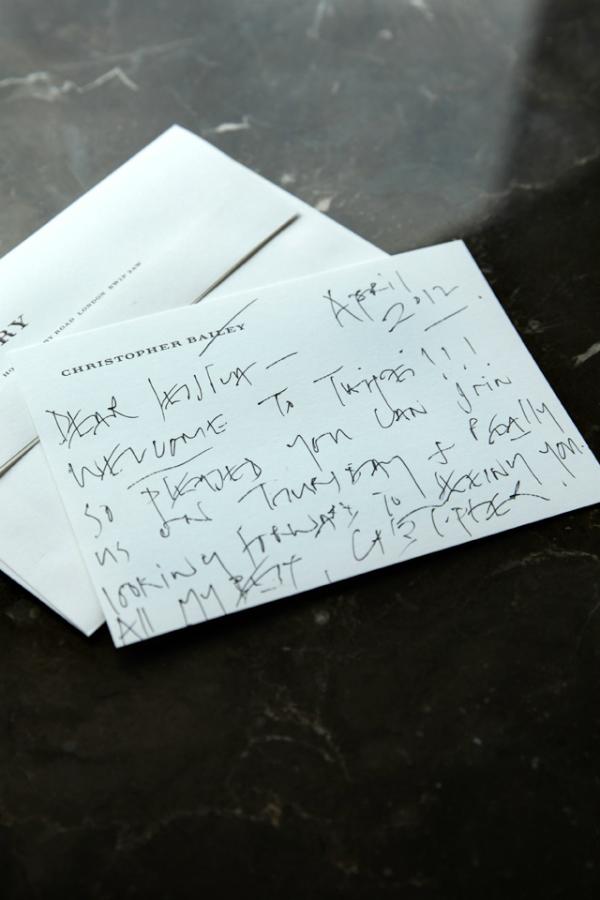 RY
RY ROAD LONDON SW1P 2AW
CHRISTOPHER BAILEY
APRIL
2012.
DEAR –
WELCOME TO TAIPEI!!!
SO PLEASED YOU CAN JOIN
US ON THURSDAY & REALLY
LOOKING FORWARD TO SEEING YOU.
All MY BEST, CHRISTOPHER.